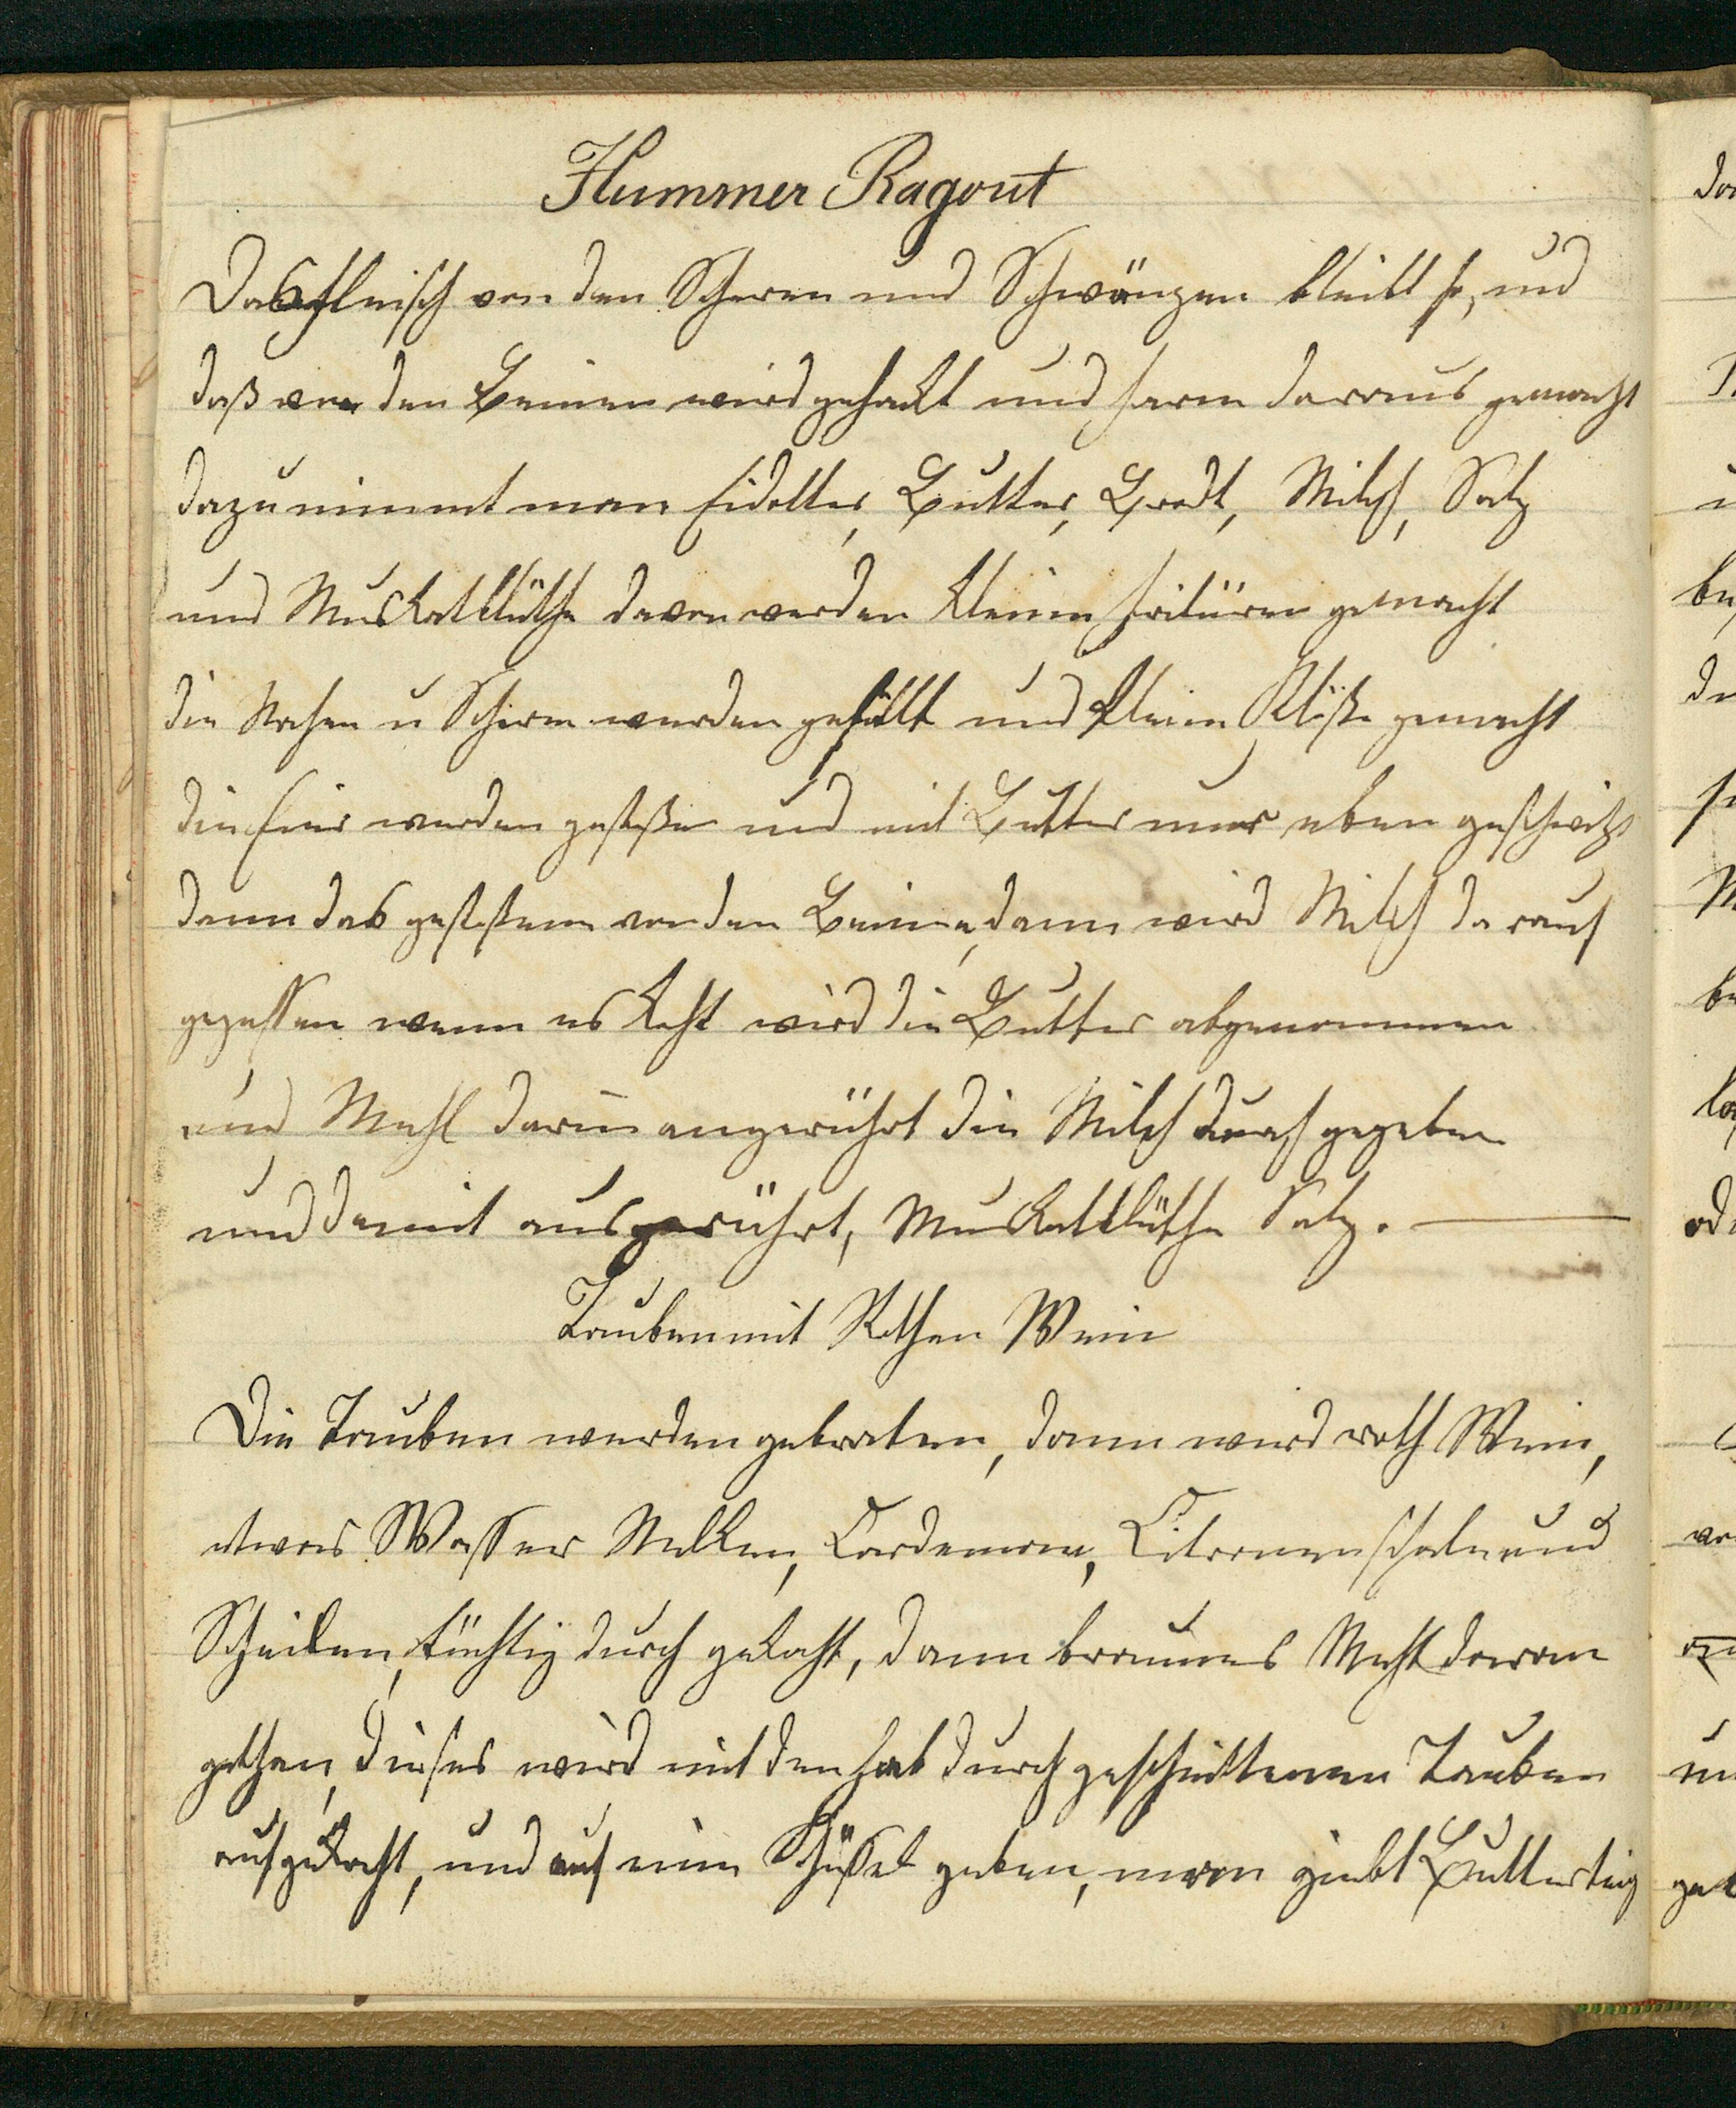 Hummer Ragout
Das Fleisch von den Scheren und Schwänzen bleibt so, und
daß von den Beinen wird gehackt und Farce daraus gemacht
dazu nimmt man Eidotter, Butter, Brodt, Milch, Salz
und Muskatblüthe davon werden kleine Fritüren gemacht
die Nasen u Scheren werden gefüllt und kleine Klöße gemacht
die Eier werden gestoßen und mit Butter nur eben geschwitzt
dann das gestoßene von den Beinen, dann wird Milch darauf
gegossen wenn es kocht wird die Butter abgenommen
und Mehl darin angerührt die Milch durch gegeben
und damit ausgerührt, Muskatblüthe Salz. —
Tauben mit Rothen Wein
Die Tauben werden gebraten, dann wird roth Wein,
etwas Wasser Nelken, Cardemom, Citronenschale und
Scheiben, tüchtig durch gekocht, dann braunes Mehl daran
gethan, dieses wird mit den halb durch geschnittenen Tauben
aufgekocht, und auf eine Schüssel geben, man giebt Butterteig